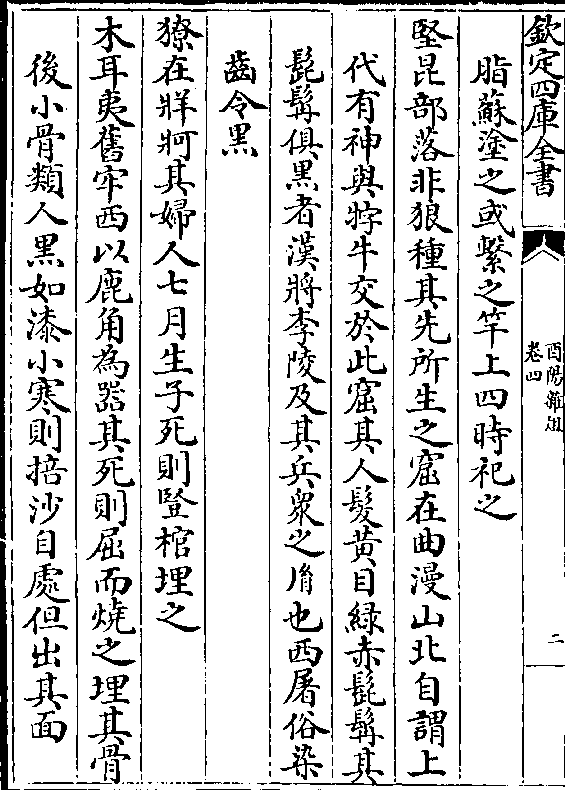 欽定四庫全書
酉陽雜俎
卷四
二
脂蘇塗之或繫之竿上四時祀之
堅昆部落非狼種其先所生之窟在曲漫山北自謂上
代有神與牸牛交於此窟其人髮黃目綠赤髭髯其
髭髯俱黑者漢將李陵及其兵衆之胤也西屠俗染
齒令黑
獠在牂牁其婦人七月生子死則豎棺埋之
木耳夷舊牢西以鹿角為器其死則屈而燒之埋其骨
後小骨類人黑如漆小寒則掊沙自處但出其面